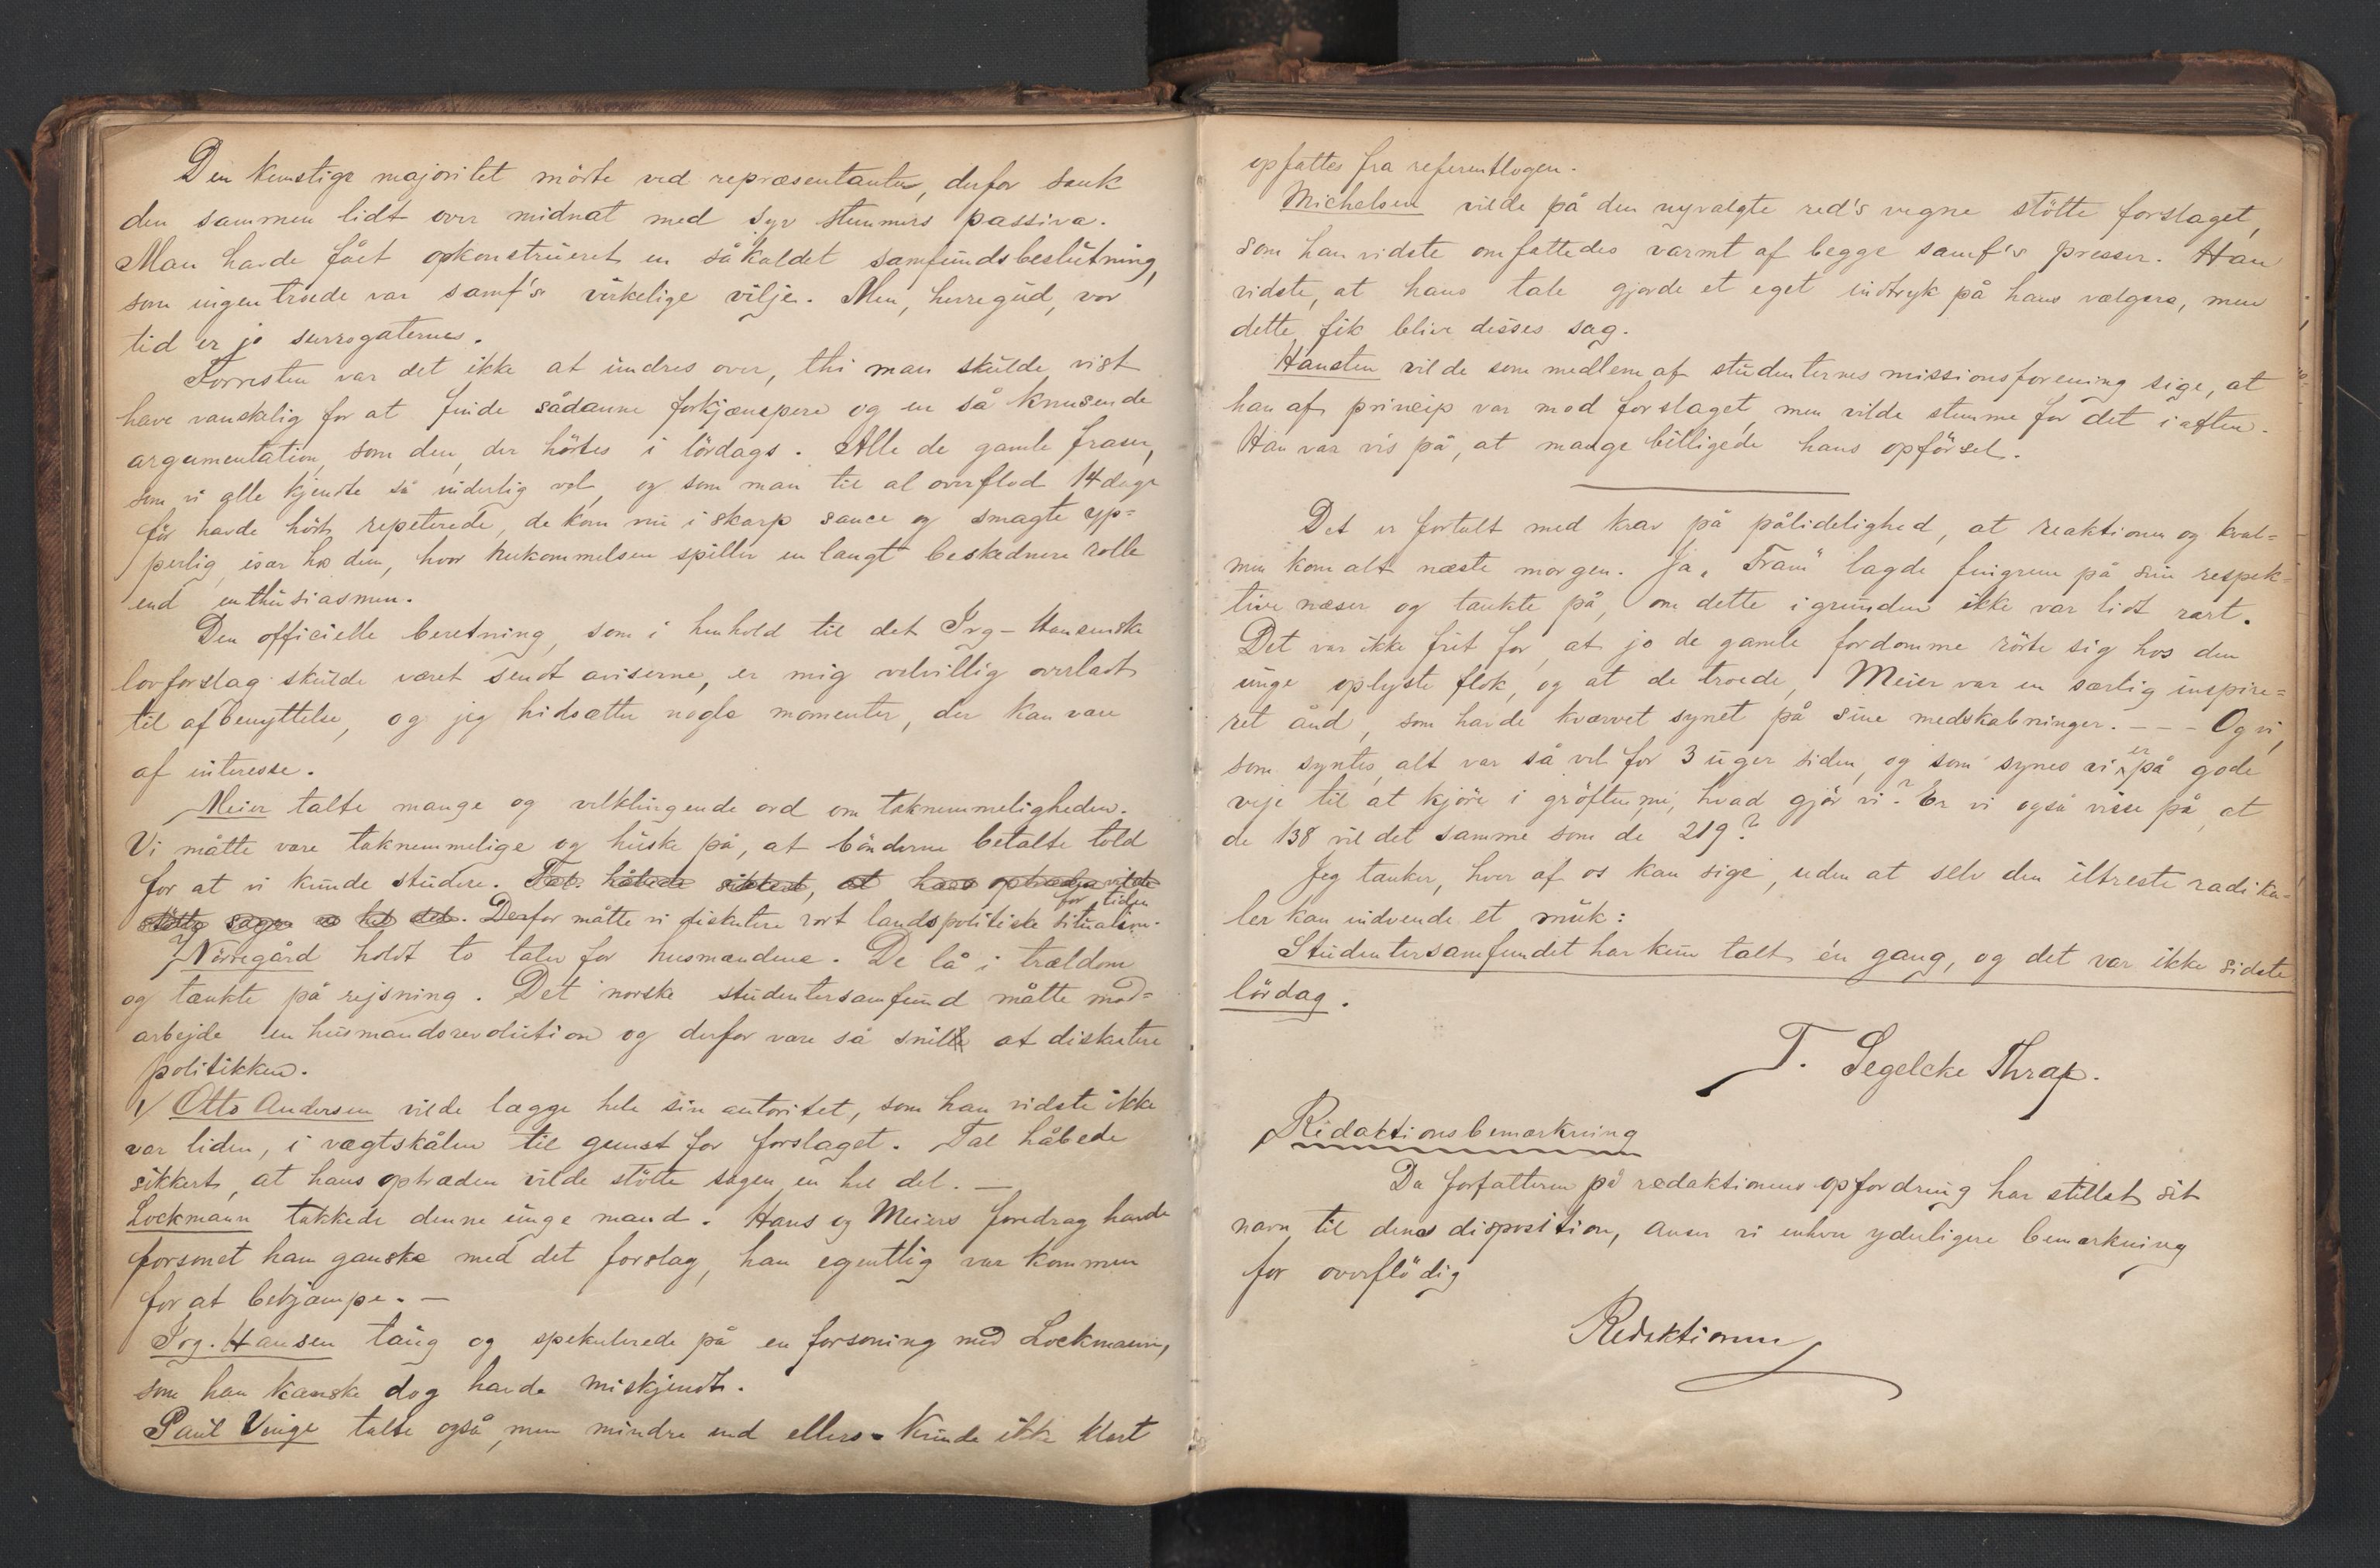 Den kunstige majoritet mörte ved repræsentanter, derfor sank
den sammen lidt over midnat med syv stemmers passiva.
Man havde fået opkonstrueret en såkaldet samfundsbeslutning,
som ingen troede var samf's virkelige vilje. Men, herregud, vor
tid er jo surrogaternes.
Forresten var det ikke at undres over, thi man skulde vist
have vanskelig for at finde sådanne forkjæmpere og en så knusende
argumentation, som den, der hörtes i lördags. Alle de gamle fraser,
som vi alle kjendte så inderlig vel, og som man til al overflod 14 dage
för havde hört repeterede, de kom nu i skarp sauce og smagte yp=
perlig, især hos dem, hvor hukommelsen spiller en langt beskednere rolle
end enthusiasmen.
Den officielle beretning, som i henhold til det Irg-Hansenske
lovforslag skulde været sendt aviserne, er mig velvillig overladt
til afbenyttelse, og jeg hidsætter nogle momenter, der kan være
af interesse.
Meier talte mange og velklingende ord om taknemmeligheden.
Vi måtte være taknemmelige og huske på, at bönderne betalte told
for at vi kunde studere. Tal. håbede sikkert, at hans optræden vilde
støtte sagen en hel del. Derfor måtte vi diskutere vort landspolitiske situation.
for tiden
Nörregård holdt to taler for husmændene. De lå i trældom
og tænkte på rejsning. Det norske studentersamfund måtte mod=
arbejde en husmandsrevolution og derfor være så snill at diskutere
politikken.
Otto Andersen vilde lægge hele sin autoritet, som han vidste ikke
var liden, i vægtskålen til gunst for forslaget. Tal håbede
sikkert, at hans optræden vilde stötte sagen en hel del. —
Lockmann takkede denne unge mand. Hans og Meiers foredrag havde
forsonet ham ganske med det forslag, han egentlig var kommen
for at bekjæmpe. —
Irg. Hansen taug og spekulerede på en forsoning med Lockmann,
som han kanske dog havde miskjendt.
Paul Vinge talte også, men mindre end ellers. Kunde ikke klart
opfattes fra referentlogen.
Michelsen vilde på den nyvalgte red's vegne stötte forslaget,
som han vidste omfattedes varmt af begge samf's presser. Han
vidste, at hans tale gjorde et eget indtryk på hans vælgere, men
dette fik blive disses sag.
Hansten vilde som medlem af studenternes missionsforening sige, at
han af princip var mod forslaget, men vilde stemme for det iaften.
Han var vis på, at mange billigede hans opförsel.
Det er fortalt med krav på pålidelighed, at reaktionen og kval=
men kom alt næste morgen. Ja, "Fram" lagde fingrene på sine respek=
tive næser og tænkte på, om dette igrunden ikke var lidt rart.
Det var ikke frit for, at jo de gamle fordomme rörte sig hos den
unge oplyste flok, og at de troede, Meier var en særlig inspire=
ret ånd, som havde kværvet synet på sine medskabninger. - - - Og vi,
som syntes, alt var så vel for 3 uger siden, og som synes vi er på gode
veje til at kjöre i gröften nu, hvad gjör vi? Er vi også visse på, at
de 138 vil det samme som de 219?
Jeg tænker, hver af os kan sige, uden at selv den iltreste radika=
ler kan indvende et muk:
Studentersamfundet har kun talt én gang, og det var ikke sidste
lördag.
T. Segelcke Thrap.
Redaktionsbemærkning
Da forfatteren på redaktionens opfordring har stillet sit
navn til dens disposition, anser vi enhver yderligere bemærkning
for overflödig
Redaktionen